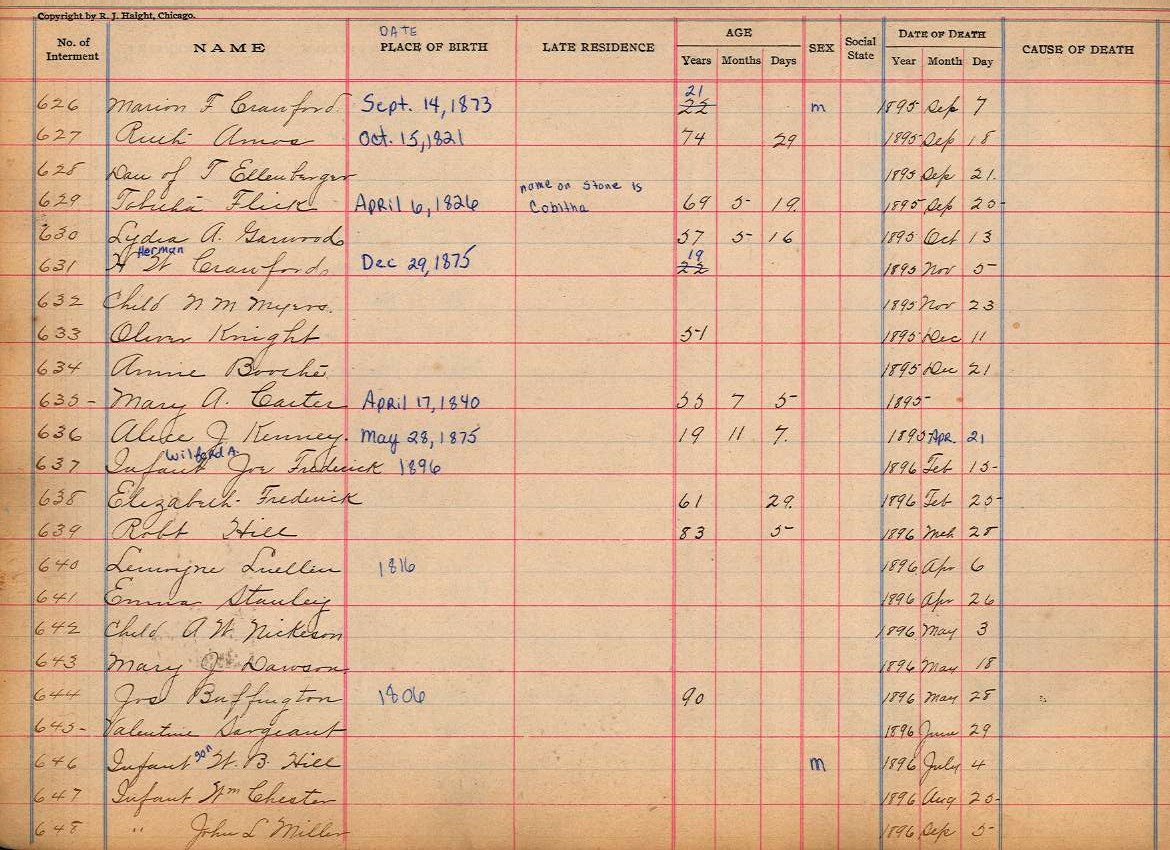 Copyright by R. J. Haight, Chicago.
No. of Interment NAME DATE PLACE OF BIRTH LATE RESIDENCE AGE Years Months Days SEX Social State DATE OF DEATH Year Month Day CAUSE OF DEATH
626 Marion F Crawford Sept. 14, 1873 21 22 m 1895 Sep 7
627 Ruth Amos Oct. 15, 1821 74 29 1895 Sep 18
628 Dau of T Ellenberger 1895 Sep 21.
629 Tobitha Flick April 6, 1826 name on stone is Cobitha 69 5 19. 1895 Sep 25
630 Lydia A. Garwood 57 5 16 1895 Oct 13
631 H Herman W Crawford Dec 29, 1875 19 22 1895 Nov 5
632 Child N M Myers. 1895 Nov 23
633 Oliver Knight 51 1895 Dec 11
634 Annie Booche 1895 Dec 21
635 - Mary A. Carter April 17, 1840 55 7 5 1895
636 Alice J Kenney. May 28, 1875 19 11 7. 1895 Apr. 21
637 Infant Wilford A. Joe Frederick 1896 1896 Feb 15
638 Elizabeth Frederick 61 29. 1896 Feb 25
639 Robt Hill 83 5 1896 Mch 28
640 Lemoyne Luellen 1816 1896 Apr 6
641 Emma Stanley 1896 Apr 26
642 Child A W. Nickeson 1896 May 3
643 Mary J Dawson. 1896 May 18
644 Jos Buffington 1806 90 1896 May 28
645 - Valentine Sargeant 1896 June 29
646 Infant son W. B. Hill m 1896 July 4
647 Infant Wm Chester 1896 Aug 25
648 " John L Miller 1896 Sep 5